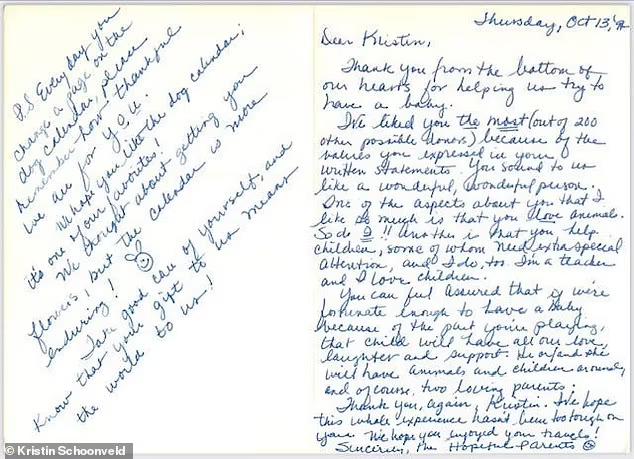 Thursday, Oct 13, '9
Dear Kristin,
Thank you from the bottom of
our hearts for helping us try to
have a baby.
We liked you the most (out of 200
other possible donors) because of the
values you expressed in your
written statements. You sound to us
like a wonderful, wonderful person.
One of the aspects about you that I
like so much is that you love animals.
So do I!! Another is that you help
children, some of whom need extra special
attention, and I do, too. I'm a teacher
and I love children.
You can feel assured that if we're
fortunate enough to have a baby
because of the part you're playing,
that child will have all our love,
laughter and support. He or/and she
will have animals and children around,
and of course, two loving parents.
Thank you, again, Kristin. We hope
this whole experience hasn't been too tough on
you. We hope you enjoyed your travels!
Sincerely, The Hopeful Parents ☺
P.S. Everyday you
change a page on the
dog calendar, please
remember how thankful
we are for you.
We hope you like the dog calendar;
it's one of your favorites!
We thought about getting you
flowers, but the calendar is more
enduring! ☺
Take good care of yourself, and
know that your gift to us means
the world to us!
© Kristin Schoonveld